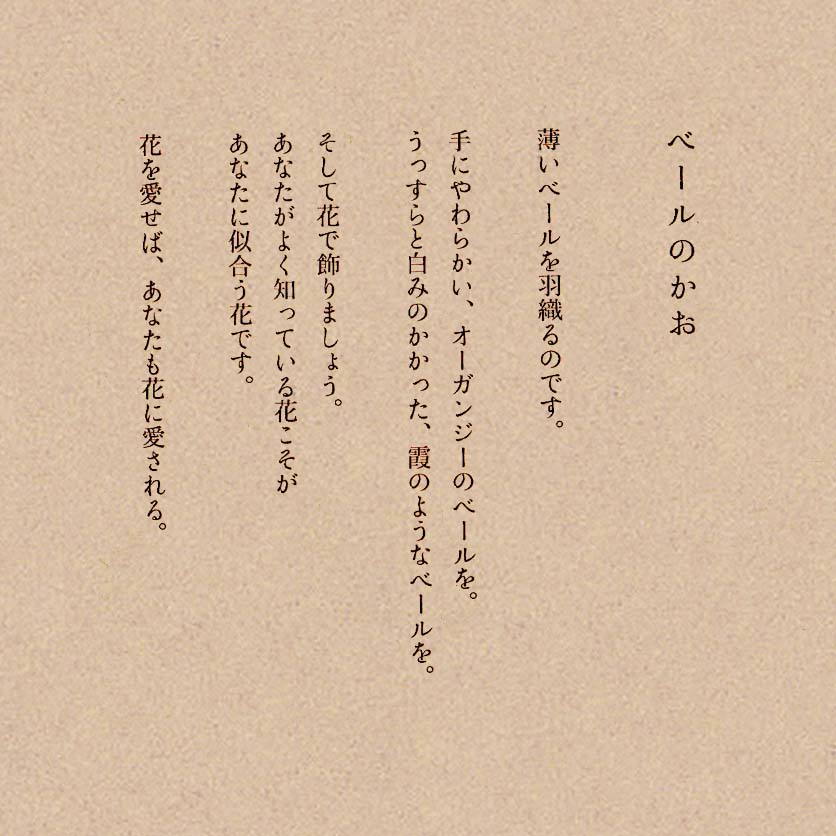 ベールのかお
薄いベールを羽織るのです。
手にやわらかい、オーガンジーのベールを。
うっすらと白みのかかった、霞のようなベールを。
そして花で飾りましょう。
あなたがよく知っている花こそが
あなたに似合う花です。
花を愛せば、あなたも花に愛される。